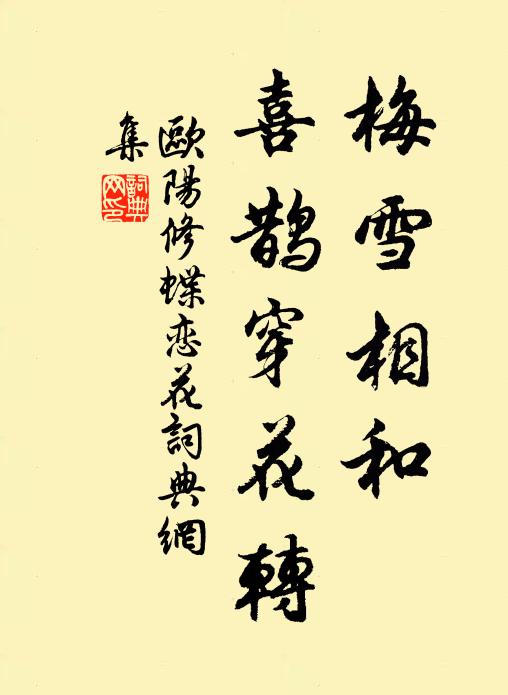 梅雪相和
喜鹊穿花轉
歐陽修蝶恋花詞典網
集
詞典
网印